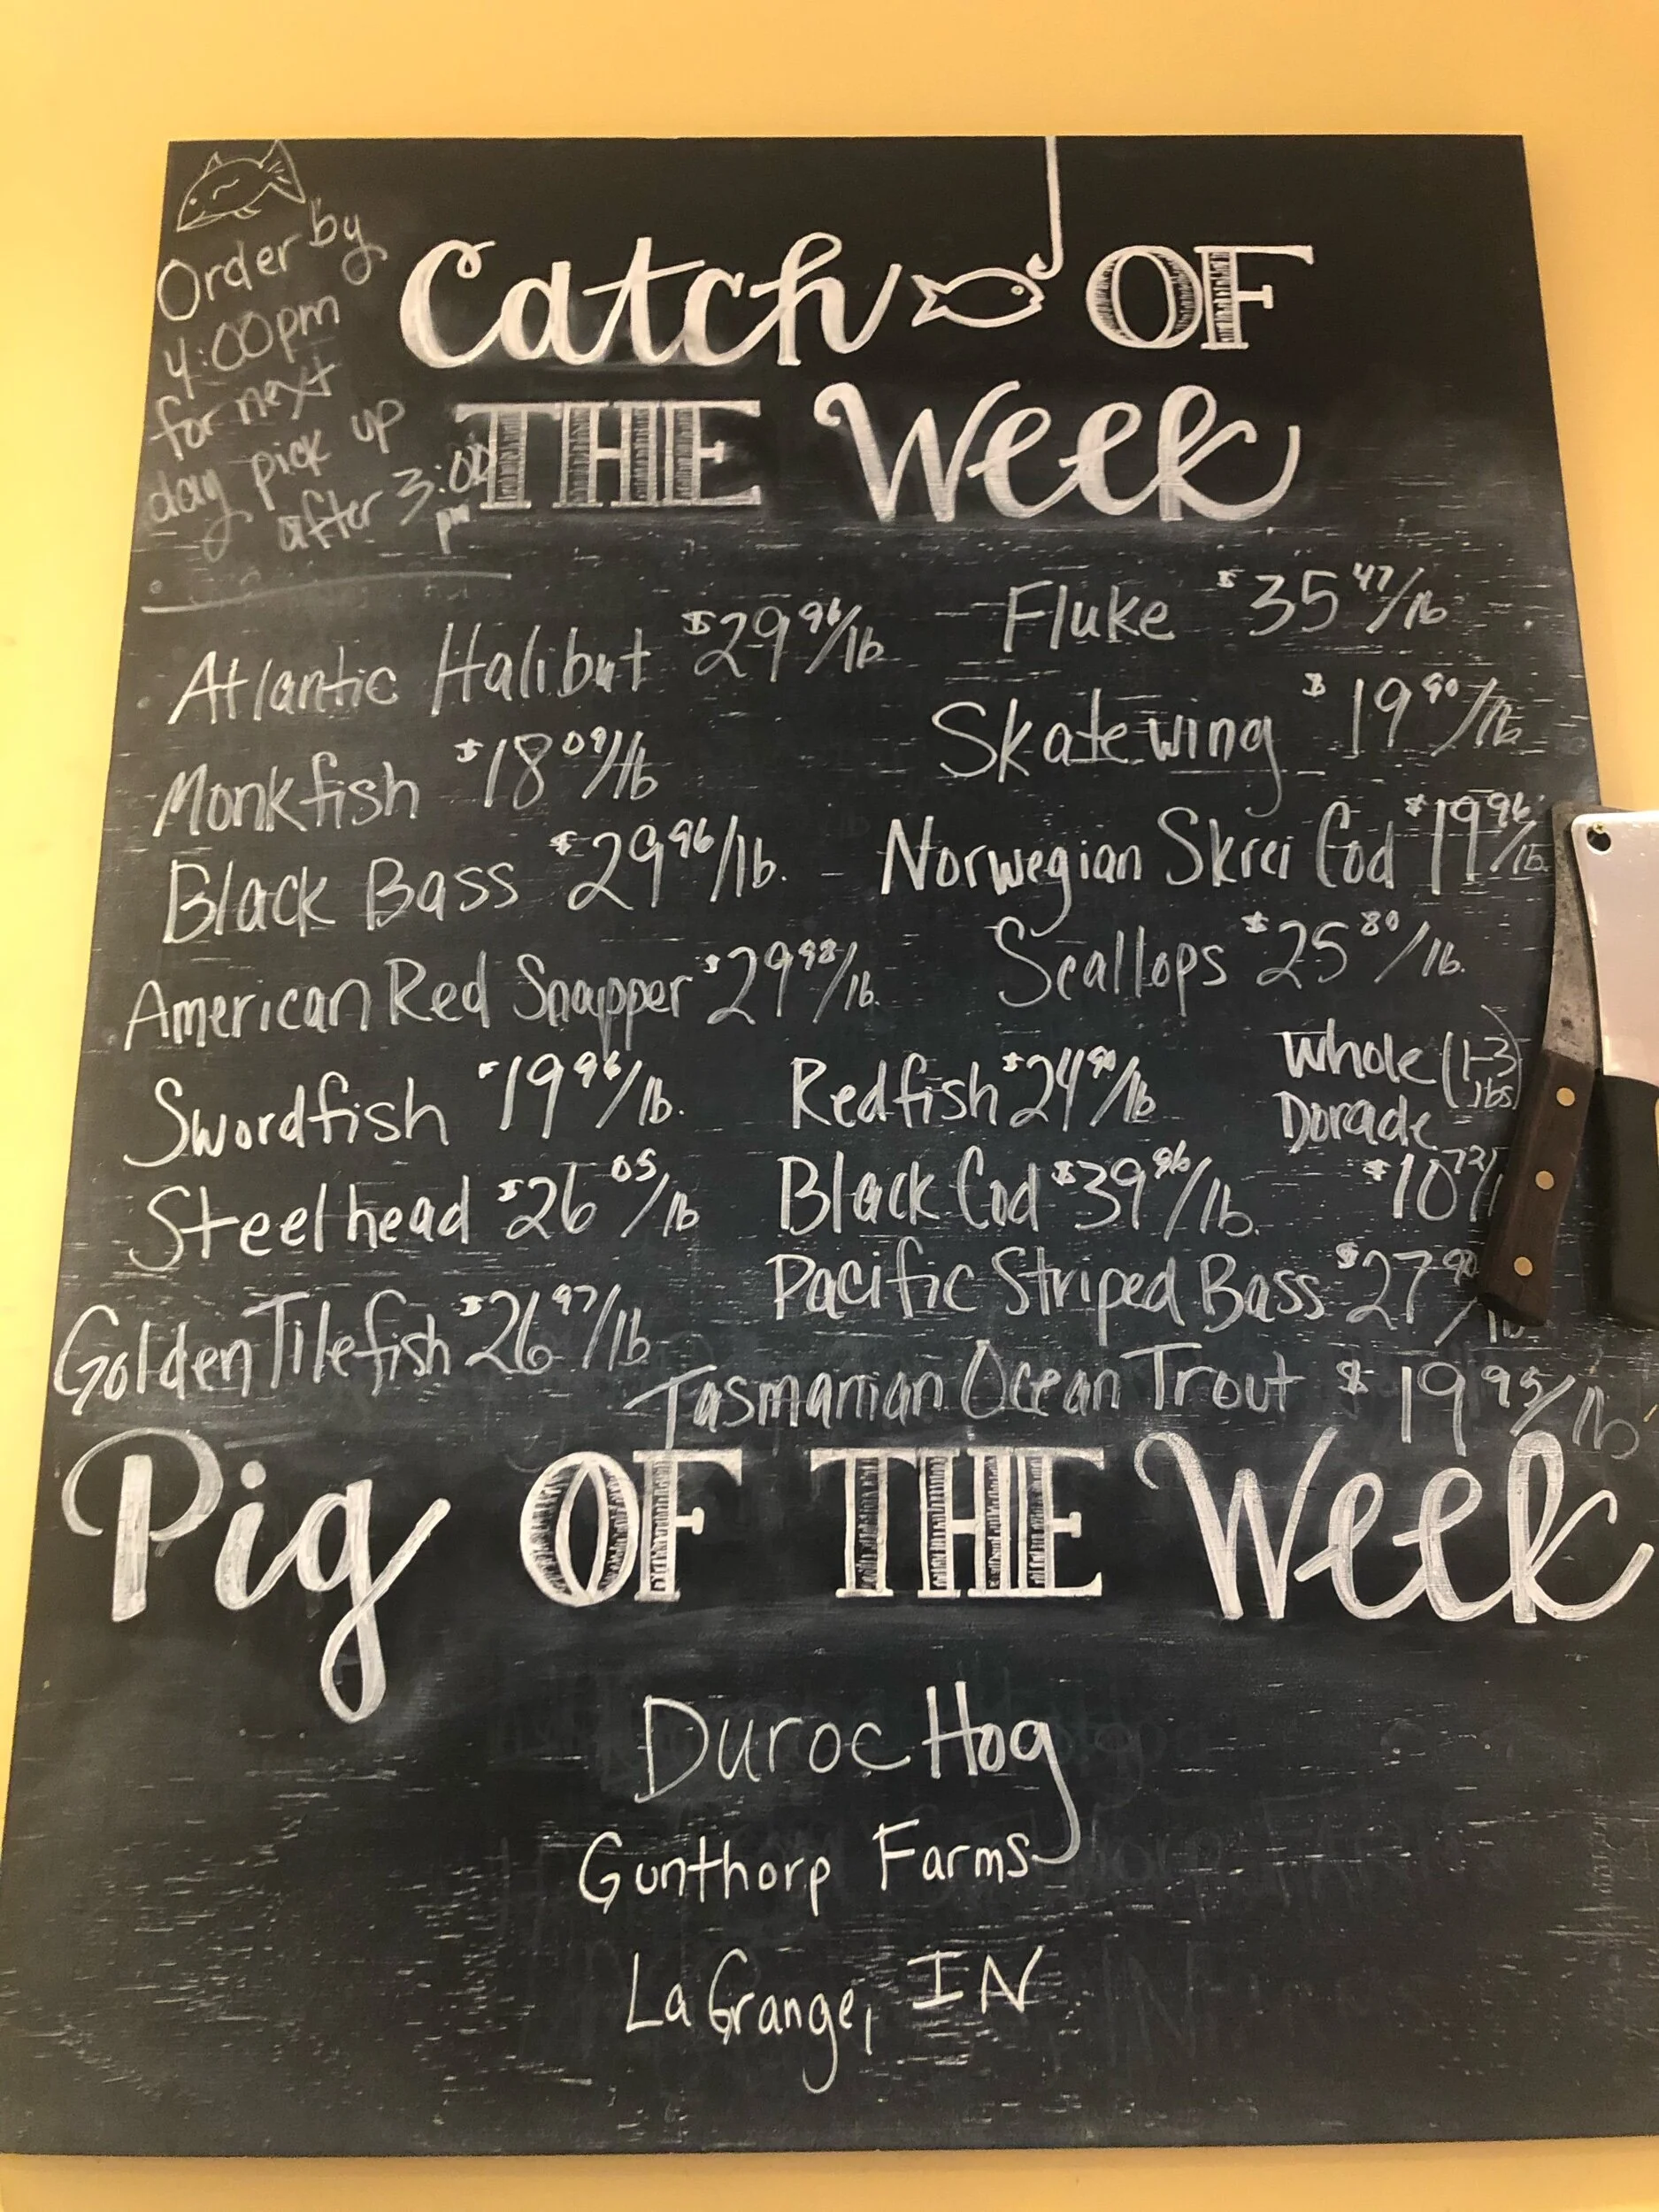 Order by
4:00pm
for next
day pick up
after 3:00
pm
Catch OF
THE Week
Atlantic Halibut $29 96/lb
Monkfish $18 09/lb
Black Bass $29 96/lb.
American Red Snapper $29 98/lb.
Swordfish $19 96/lb.
Steelhead $26 05/lb
Golden Tilefish $26 97/lb
Fluke $35 47/lb
Skate wing $19 90/lb
Norwegian Skrei Cod $19 96/lb.
Scallops $25 80/lb.
Redfish $24 90/lb
Whole (1-3 lbs)
Dorade
$10 72/
Black Cod $39 96/lb.
Pacific Striped Bass $27 90/lb
Tasmanian Ocean Trout $19 95/lb
Pig OF THE Week
Duroc Hog
Gunthorp Farms
La Grange, IN